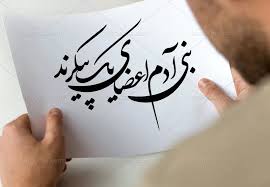 بنی آدم اعضای یک پیکرند